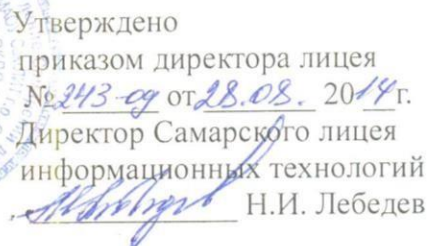 Утверждено
приказом директора лицея
№ 243-од от 28.08. 2014г.
Директор Самарского лицея
информационных технологий
Н.И. Лебедев